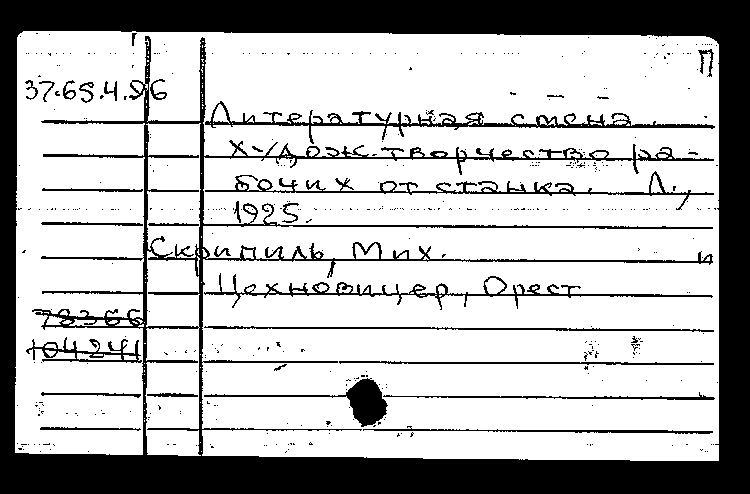 П
37.65.4.96
Литературная смена.
Худож. творчество ра-
бочих от станка. Л.,
1925.
Скрипиль, Мих. и
Цехновицер, Орест
78366
104241